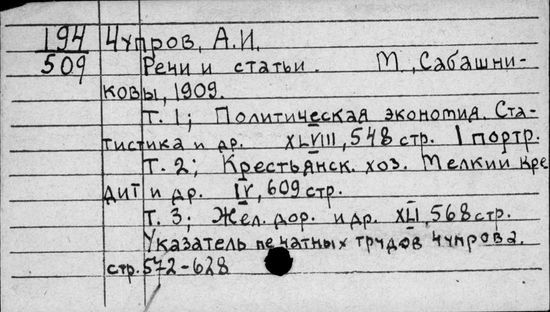 194 Чупров, А.И.
509 Речи и статьи. М., Сабашни-
ковы, 1909.
Т. 1; Политическая экономия. Ста-
тистика и др. XLVIII, 548 стр. 1 портр.
Т. 2; Крестьянск. хоз. Мелкий кре
дит и др. IV, 609 стр.
Т. 3; Жел. дор. и др. XLI, 568 стр.
Указатель печатных трудов Чупрова.
стр. 572-628